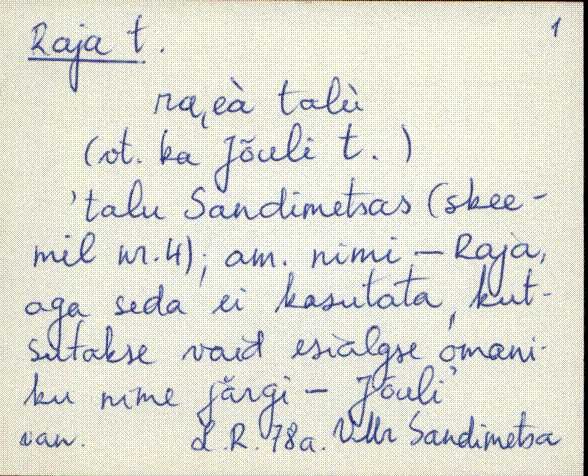 1
Raja t.
ra͔eà talù
(vt. ka Jõuli t.)
'talu Sandimetsas (skee-
mil nr.4); am. nimi – Raja,
aga seda ei kasutata, kut-
sutakse vaid esialgse omani-
ku nime järgi – Jõuli'
L.R. 78a. Sandimetsa